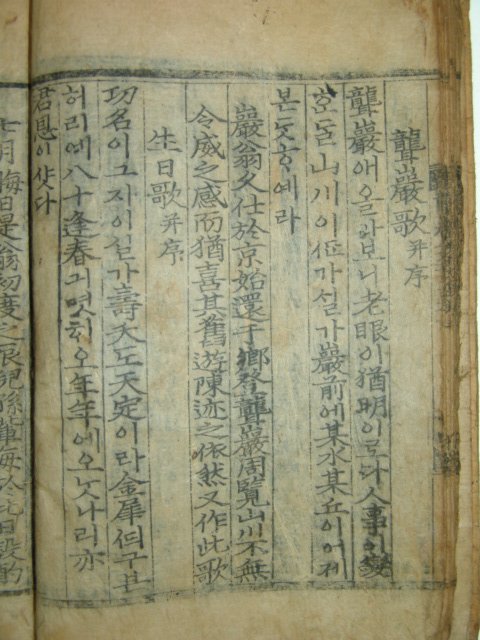 聾巖歌 幷序
聾巖애 올라보니 老眼이 猶明이로다 人事이 變
ᄒᆞᆫᄃᆞᆯ 山川이ᄯᆞᆫ 가실가 巖前에 某水某丘이 어제
본ᄃᆞᆺᄒᆞ예라
巖翁久仕於京始還于鄕登聾巖周覽山川不無
令威之感而猶喜其舊遊陳迹之依然又作此歌
生日歌 幷序
功名이 그지이실가 壽夭도 天定이라 金犀ᄯᅴ 구븐
허리예 八十逢春 긔 몃ᄒᆡ오 年年에 오ᄂᆞᆺ나리 亦
君恩이샷다
七月晦日是翁初度之辰兒孫輩每於此日設酌